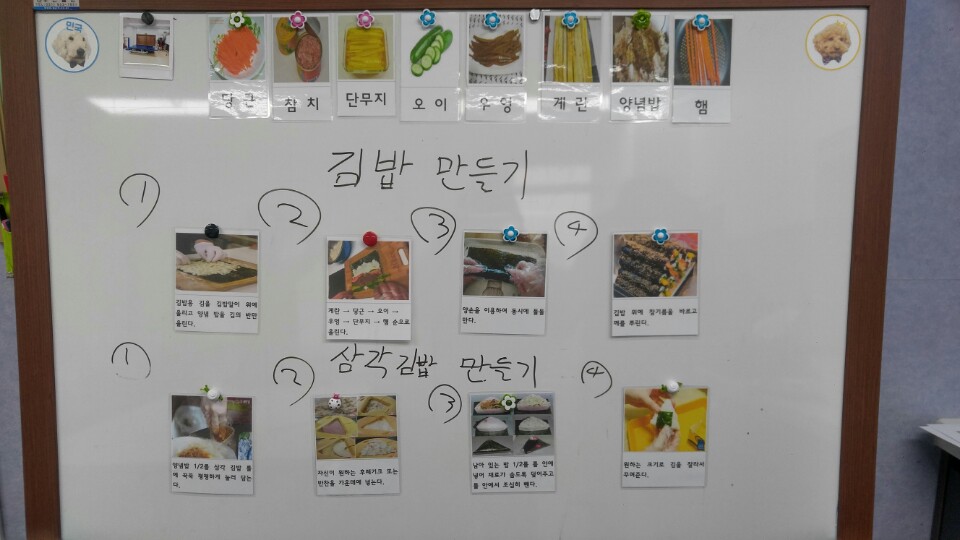 민국
당근
참치
단무지
오이
우엉
계란
양념밥
햄
김밥 만들기
①
②
③
④
김밥용 김을 김발말이 위에
올리고 양념 밥을 김의 반만
올린다.
계란 → 당근 → 오이 →
우엉 → 단무지 → 햄 순으로
올린다.
양손을 이용하여 동시에 돌돌
만다.
김밥 위에 참기름을 바르고
깨를 뿌린다.
삼각김밥 만들기
①
②
③
④
양념밥 1/2를 삼각 김밥 틀
에 꾹꾹 평평하게 눌러 담는
다.
자신이 원하는 후레가크 또는
반찬을 가운데에 넣는다.
남아 있는 밥 1/2를 틀 안에
넣어 재료가 숨도록 덮어주고
틀 안에서 조심히 뺀다.
원하는 크기로 김을 잘라서
꾸며준다.